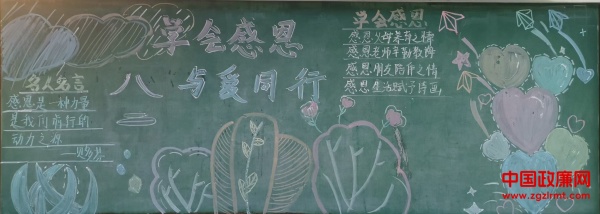 学会感恩
与爱同行
名人名言
感恩是一种力量
是我们前行的
动力之源
学会感恩
感恩父母养育之情
感恩老师辛勤教诲
感恩朋友陪伴之情
感恩生活赋予诗画
中国政廉网
www.zgzlrmt.com